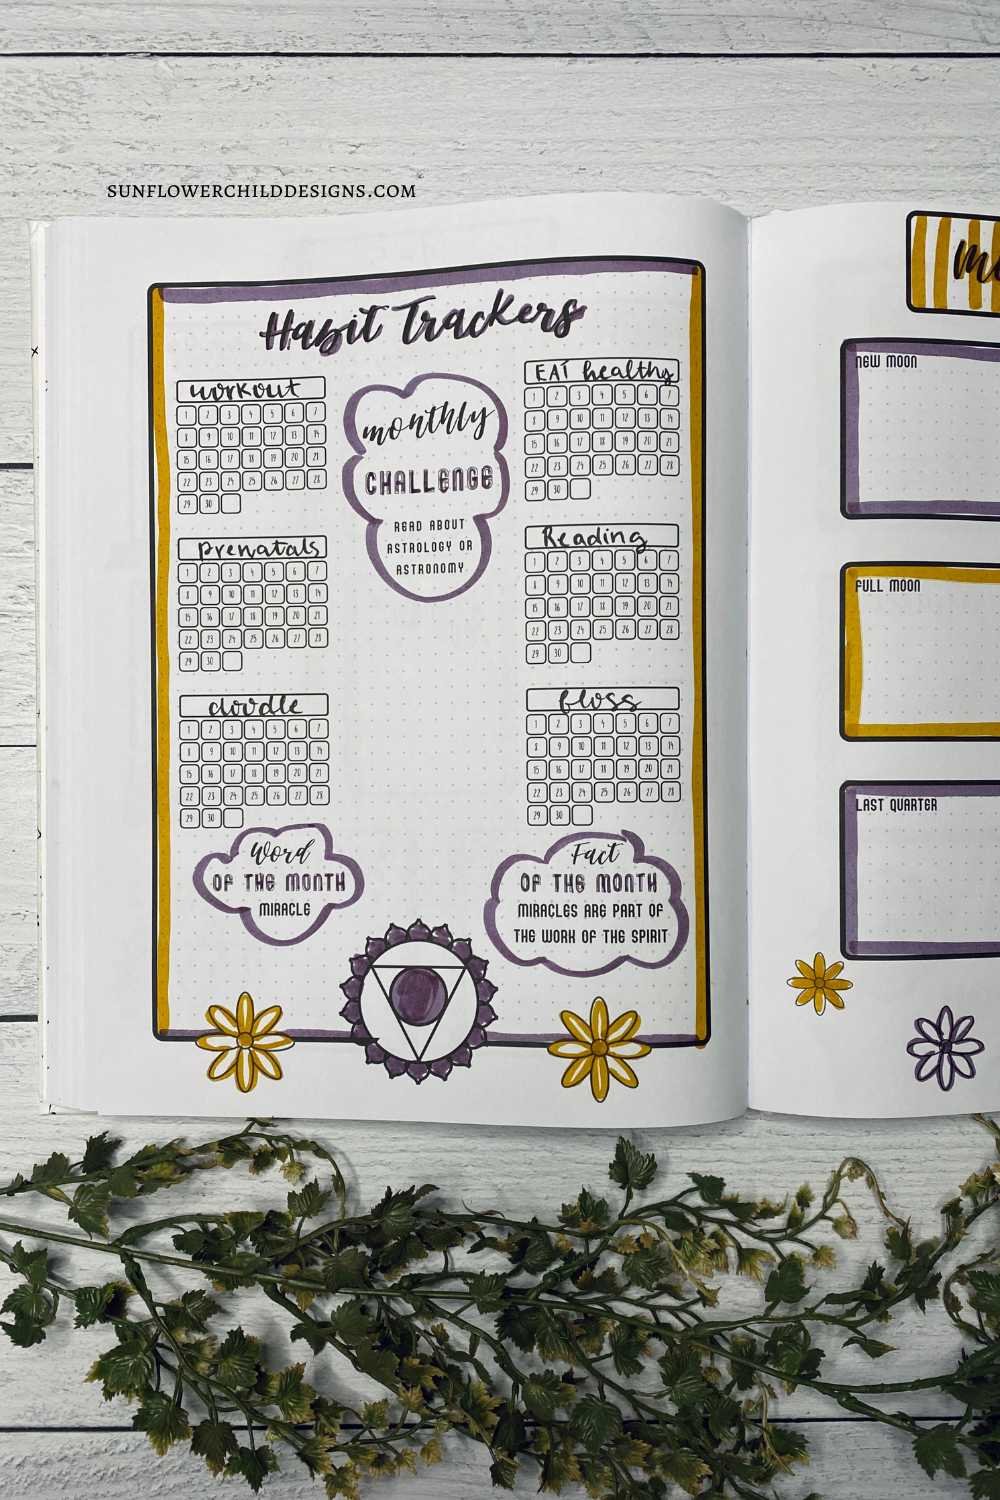 SUNFLOWERCHILDDESIGNS.COM
Habit Trackers
workout
1 2 3 4 5 6 7
8 9 10 11 12 13 14
15 16 17 18 19 20 21
22 23 24 25 26 27 28
29 30
Prenatals
1 2 3 4 5 6 7
8 9 10 11 12 13 14
15 16 17 18 19 20 21
22 23 24 25 26 27 28
29 30
doodle
1 2 3 4 5 6 7
8 9 10 11 12 13 14
15 16 17 18 19 20 21
22 23 24 25 26 27 28
29 30
Word
OF THE MONTH
MIRACLE
monthly
CHALLENGE
READ ABOUT
ASTROLOGY OR
ASTRONOMY
EAT healthy
1 2 3 4 5 6 7
8 9 10 11 12 13 14
15 16 17 18 19 20 21
22 23 24 25 26 27 28
29 30
Reading
1 2 3 4 5 6 7
8 9 10 11 12 13 14
15 16 17 18 19 20 21
22 23 24 25 26 27 28
29 30
floss
1 2 3 4 5 6 7
8 9 10 11 12 13 14
15 16 17 18 19 20 21
22 23 24 25 26 27 28
29 30
Fact
OF THE MONTH
MIRACLES ARE PART OF
THE WORK OF THE SPIRIT
NEW MOON
FULL MOON
LAST QUARTER